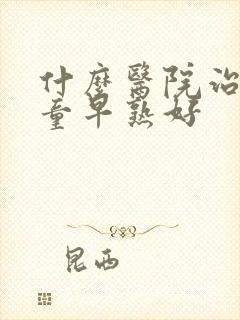 什麼醫院治
童早熟好
昆西